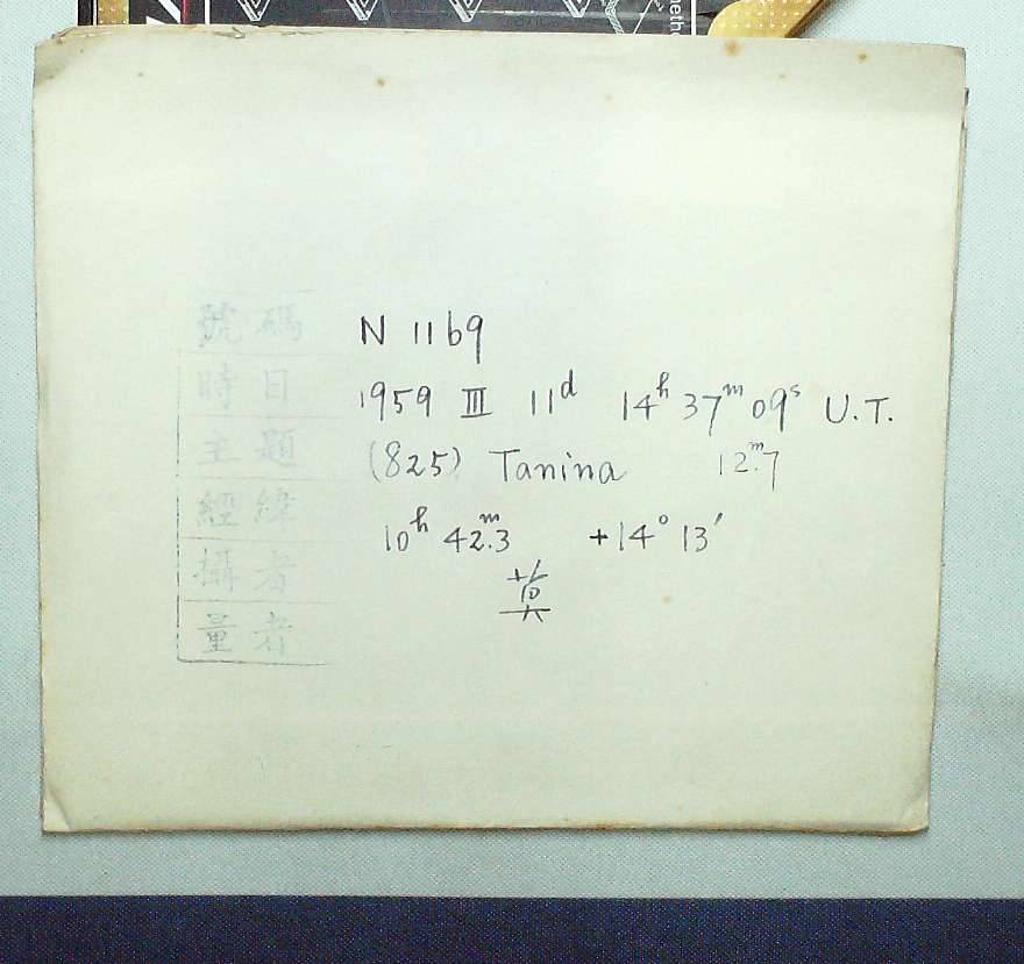 號碼 N 1169
時日 1959 III 11ᵈ 14ʰ 37ᵐ 09ˢ U.T.
主題 (825) Tanina 12ᵐ.7
經緯 10ʰ 42ᵐ.3 +14° 13′
攝者
量者